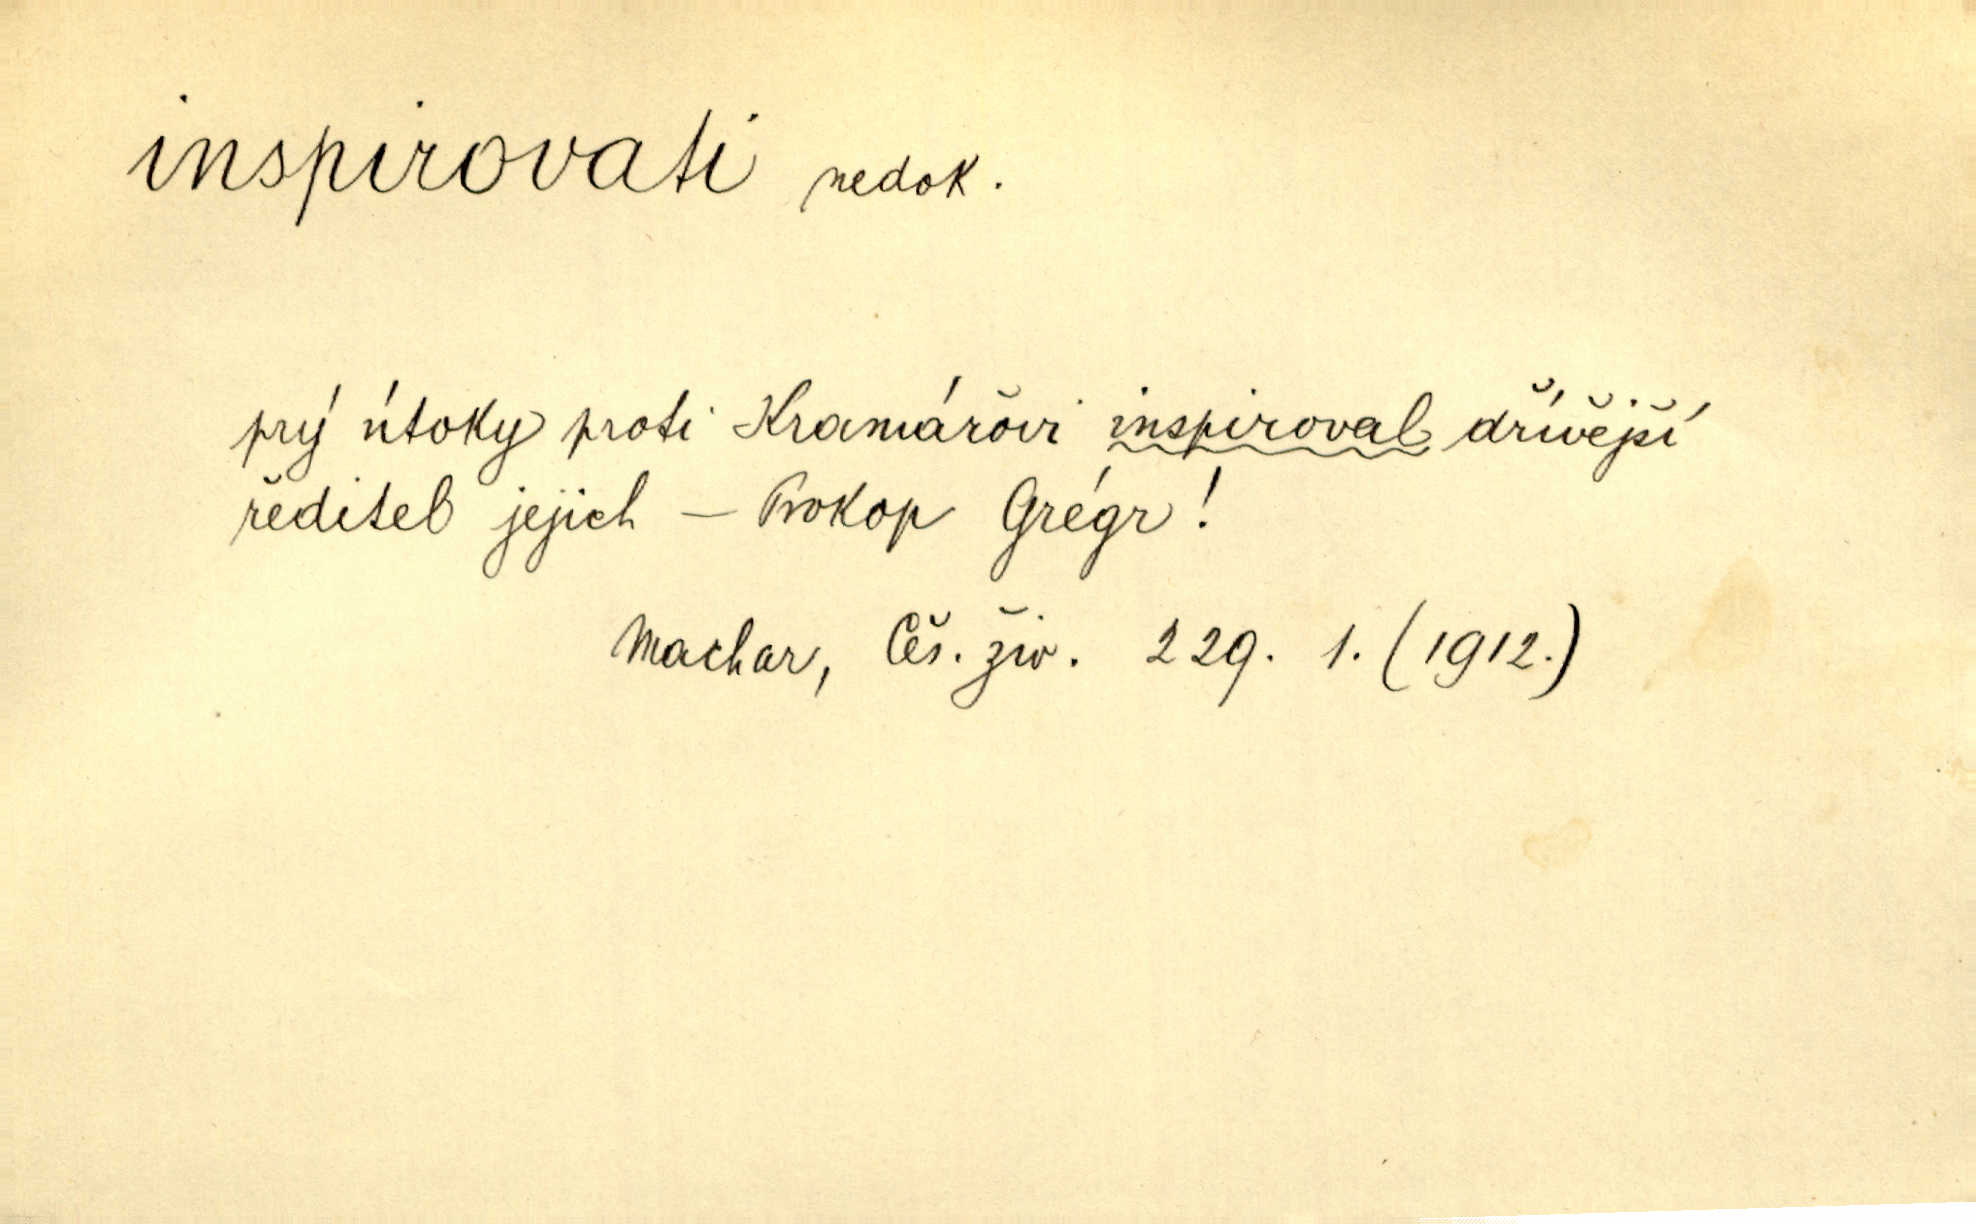 inspirovati nedok.
prý útoky proti Kramářovi inspiroval dřívější
ředitel jejich – Prokop Grégr!
Machar, Čes. živ. 229. 1. (1912.)